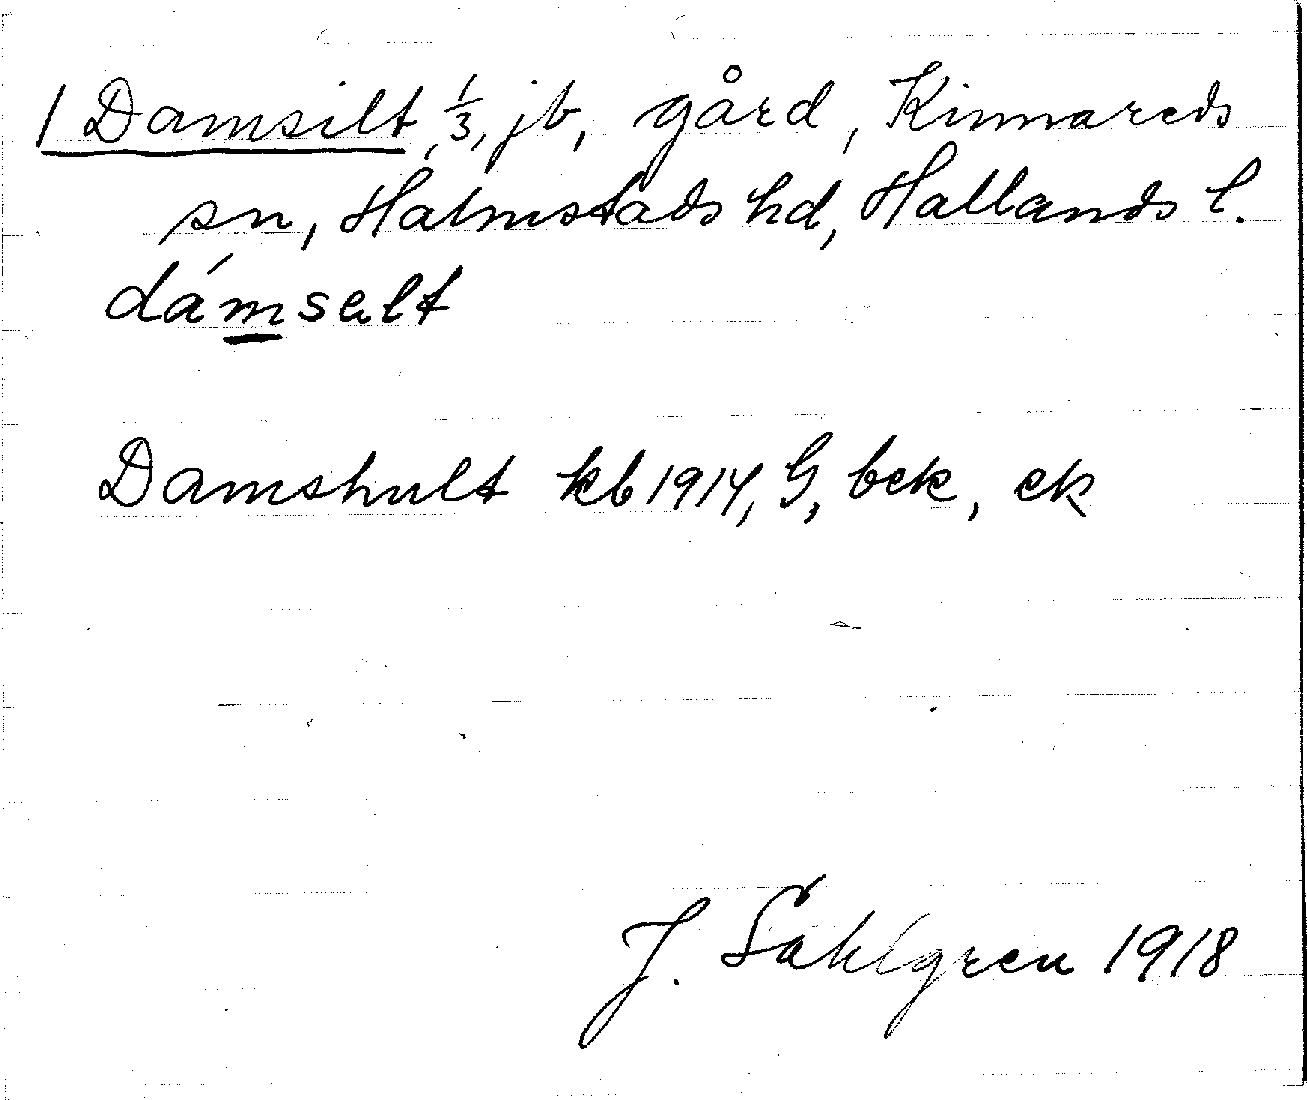 1 Damsilt, 1/3, jb, gård, Kinnareds
sn, Halmstads hd, Hallands l.
dámsalt
Damshult kb 1914, G, bek, ek
J. Sahlgren 1918